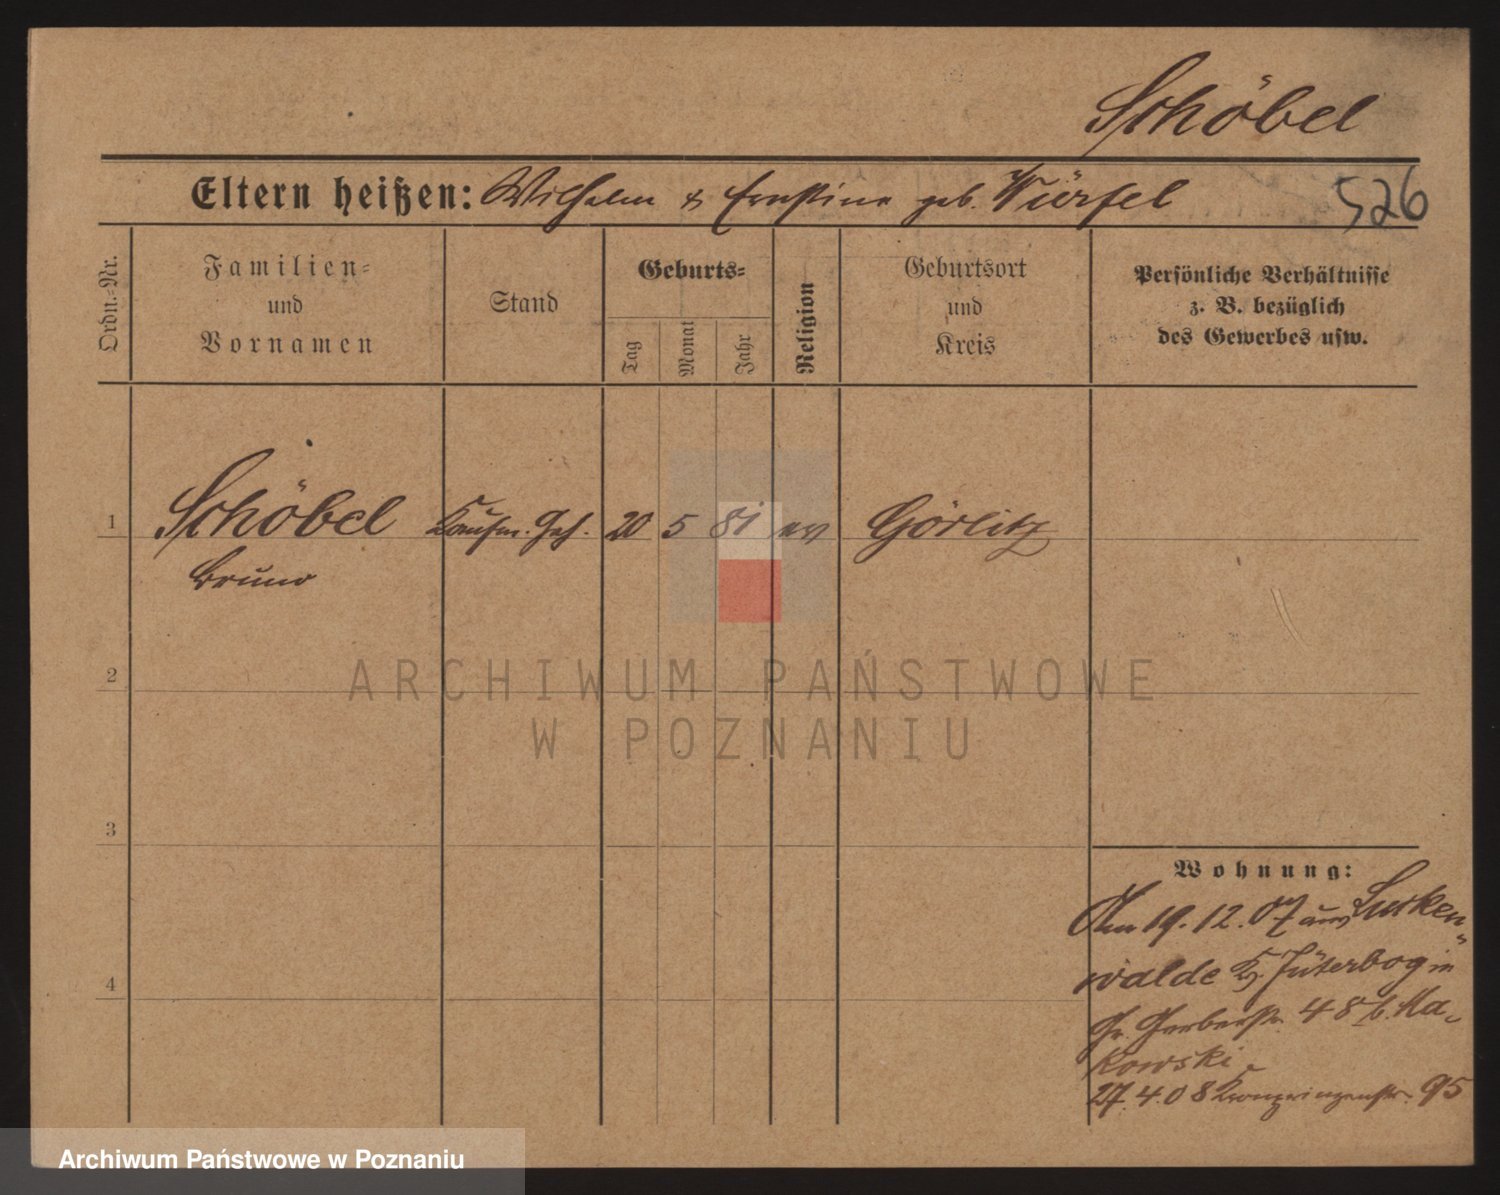 Schöbel
Eltern heißen: Wilhelm & Ernstine geb. Würfel 526
Ordn.-Nr.
Familien-
und
Vornamen
Stand
Geburts-
Tag
Monat
Jahr
Religion
Geburtsort
und
Kreis
Persönliche Verhältnisse
z. B. bezüglich
des Gewerbes usw.
1 Schöbel Kaufm. Geh. 20 5 81 ev Görlitz
Bruno
ARCHIWUM PAŃSTWOWE
W POZNANIU
2
3
4
Wohnung:
Am 19. 12. 07 aus Lucken-
walde K. Jüterbog in
Gr. Gerberstr. 48 b. Ma-
kowski.
27. 4. 08 Kronprinzenstr. 95
Archiwum Państwowe w Poznaniu